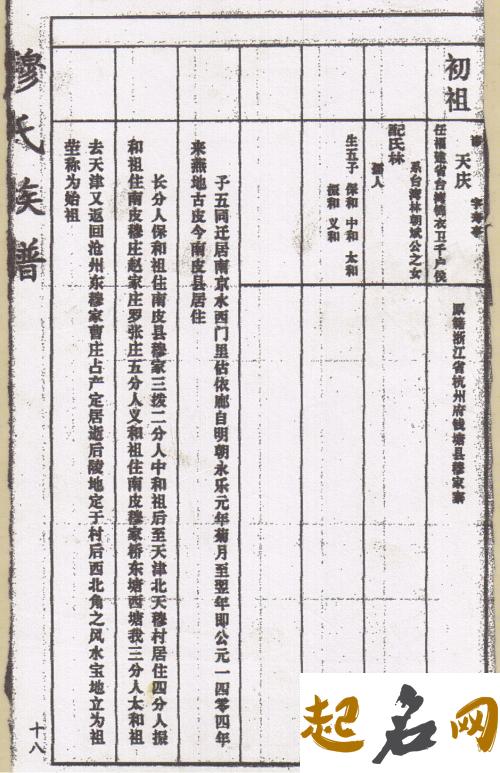 穆氏族谱
十八
初祖
讳 天庆 字寿亭
任福建省台湾锦衣卫千户侯
原籍浙江省杭州府钱塘县穆家寨
配氏林
系台湾林朝斌公之女
摇人
生五子 保和 中和 太和
振和 义和
子五同迁居南京水西门里估依廊自明朝永乐元年菊月至翌年即公元一四零四年
来燕地古皮今南皮县居住
长分人保和祖住南皮县穆家三拨二分人中和祖后至天津北天穆村居住四分人振
和祖住南皮穆庄赵家庄罗张庄五分人义和祖住南皮穆家桥东塘西塘我三分人太和祖
去天津又返回沧州东穆家曹庄占产定居逝后陵地定于村后西北角之风水宝地立为祖
茔称为始祖
起名网